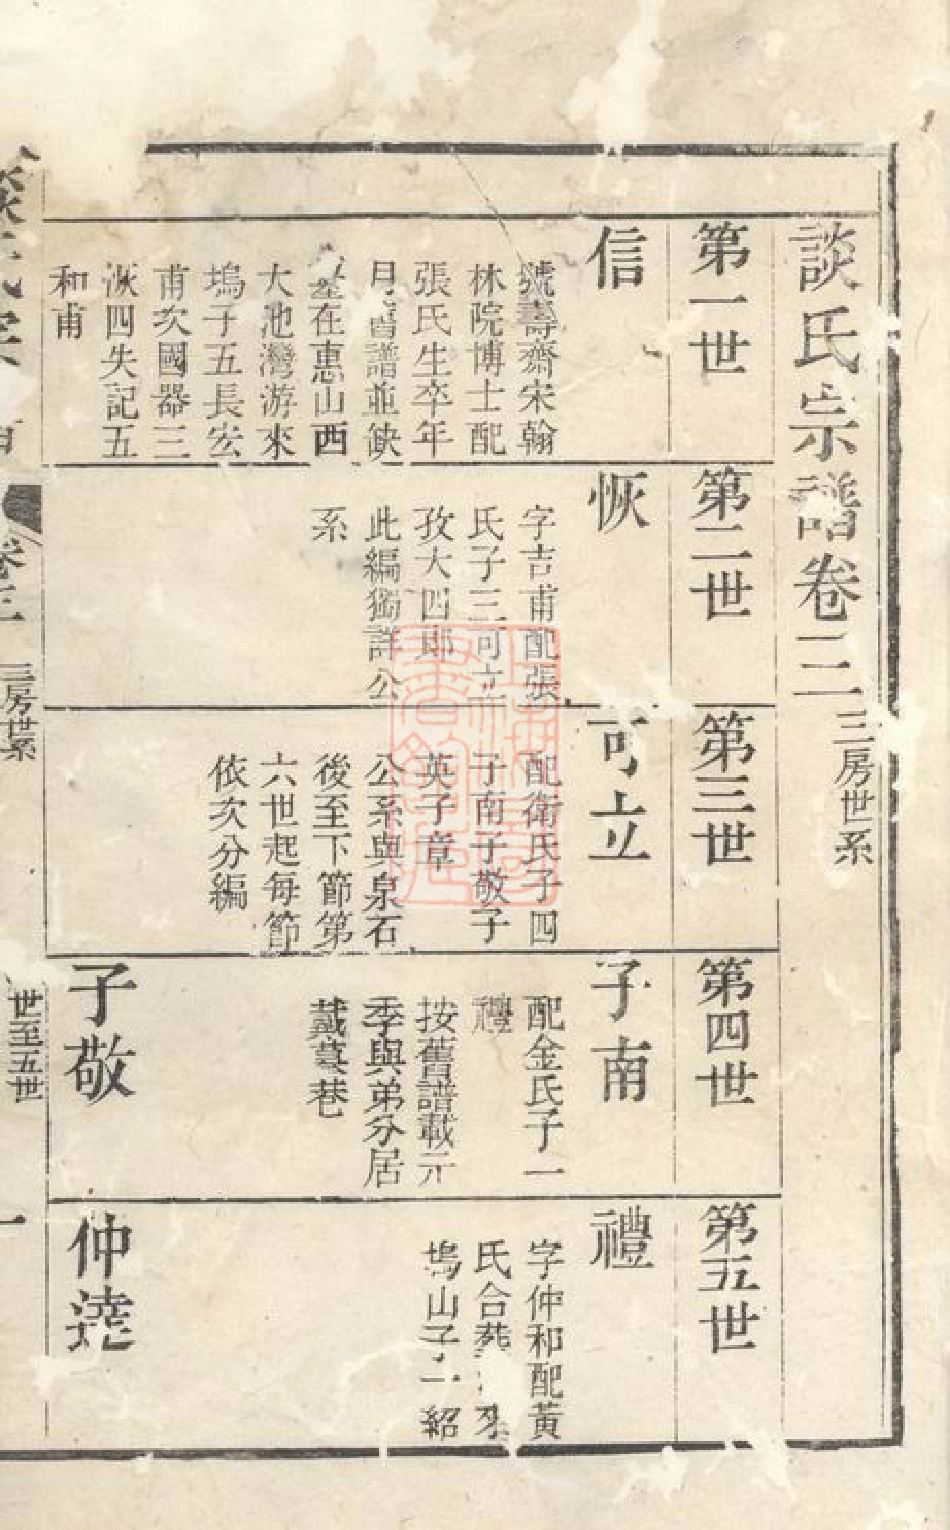 談氏宗譜卷三
三房世系
第一世
信
號壽齋宋翰
林院博士配
張氏生卒年
月舊譜並缺
墓在惠山西
大池灣游來
塢子五長宏
甫次國器三
恢四失記五
和甫
第二世
恢
字吉甫配張
氏子三可立
孜大四郎
此編獨詳公
系
第三世
可立
配衛氏子四
子南子敬子
英子章
公系與泉石
後至下節第
六世起每節
依次分編
第四世
子南
配金氏子一
禮
按舊譜載元
季與弟分居
戴墓巷
子敬
第五世
禮
字仲和配黃
氏合葬 來
塢山子二 紹
仲澆
卷三
三房世系
世至五世
一